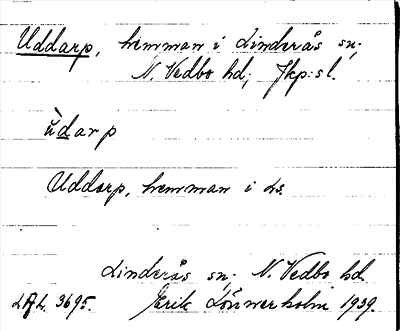 Uddarp, hemman i Linderås sn;
N. Vedbo hd; Jkp:s l.
ùdarp
Uddarp, hemman i Ls
Linderås sn. N. Vedbo hd.
3695. Erik Lönnerholm 1939.